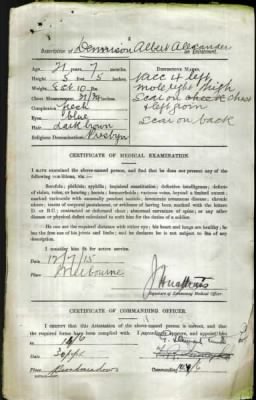 Description of Dennison Albert Alexander on Enlistment.
Age 21 years 7 months
Height 5 feet 5 inches
Weight 8st 10 lbs.
Chest Measurement inches
Complexion fresh
Eyes blue
Hair dark brown
Religious Denomination Presbyn
DISTINCTIVE MARKS.
Vacc 4 left
mole right thigh
Scar on cheek chest
& left groin
Scar on back
CERTIFICATE OF MEDICAL EXAMINATION.
I HAVE examined the above-named person, and find that he does not present any of the following conditions, viz.:—
Scrofula; phthisis; syphilis; impaired constitution; defective intelligence; defects of vision, voice, or hearing; hernia; hæmorrhoids; varicose veins, beyond a limited extent; marked varicocele with unusually pendent testicle; inveterate cutaneous disease; chronic ulcers; traces of corporal punishment, or evidence of having been marked with the letters D. or B.C.; contracted or deformed chest; abnormal curvature of spine; or any other disease or physical defect calculated to unfit him for the duties of a soldier.
He can see the required distance with either eye; his heart and lungs are healthy; he has the free use of his joints and limbs; and he declares he is not subject to fits of any description.
I consider him fit for active service.
Date 12/7/15
Place Melbourne
Signature of Examining Medical Officer.
CERTIFICATE OF COMMANDING OFFICER.
I CERTIFY that this Attestation of the above-named person is correct, and that the required forms have been complied with.
Date
Place
Commanding